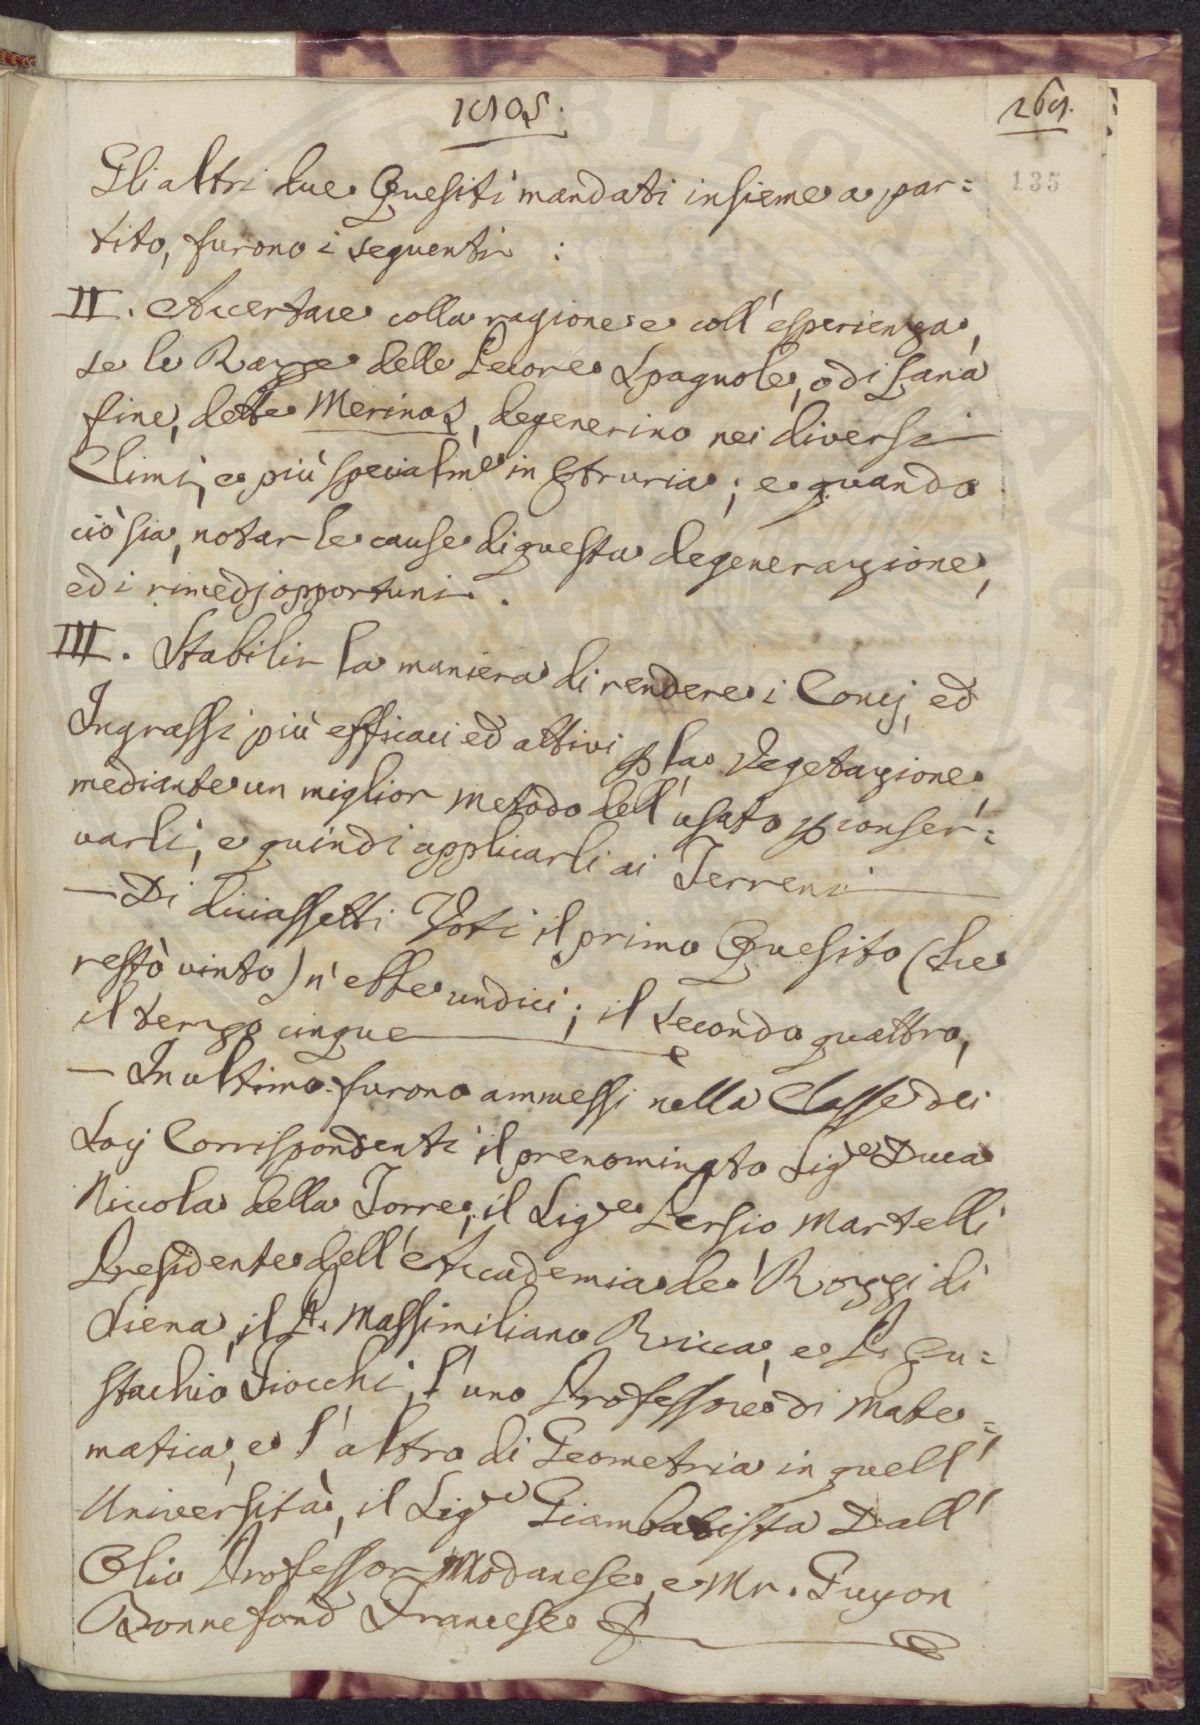 1805.
269.
135
Gli altri due Quesiti mandati insieme a par=
tito, furono i seguenti :
II. Accertare colla ragione e coll' esperienza,
se le Razze delle Pecore Spagnole, o di Lana
fine, dette Merinos, degenerino nei diversi
Climi, e più specialme in Etruria; e quando
ciò sia, notar le cause di questa degenerazione,
ed i rimedj opportuni.
III. Stabilir la maniera di rendere i Concj, ed
Ingrassi più efficaci ed attivi p la Vegetazione,
mediante un miglior metodo dell' usato p conser=
varli, e quindi applicarli ai Terreni
— Di diciassetti Voti il primo Quesito (che
restò vinto) n' ebbe undici; il secondo quattro,
il terzo cinque
— In ultimo furono ammessi nella Classe dei
Socj Corrispondenti il prenominato Sigre Duca
Niccola della Torre, il Sigre Persio Martelli
Presidente dell' Accademia de' Rozzi di
Siena, il P. Massimiliano Ricca, e P. Eu=
stachio Fiocchi, l' uno Professore di Mate=
matica, e l' altro di Geometria in quell'
Università, il Sigre Giambatista Dall'
Olio Professor Modanese, e Mr. Guyon
Bonnefond Francese